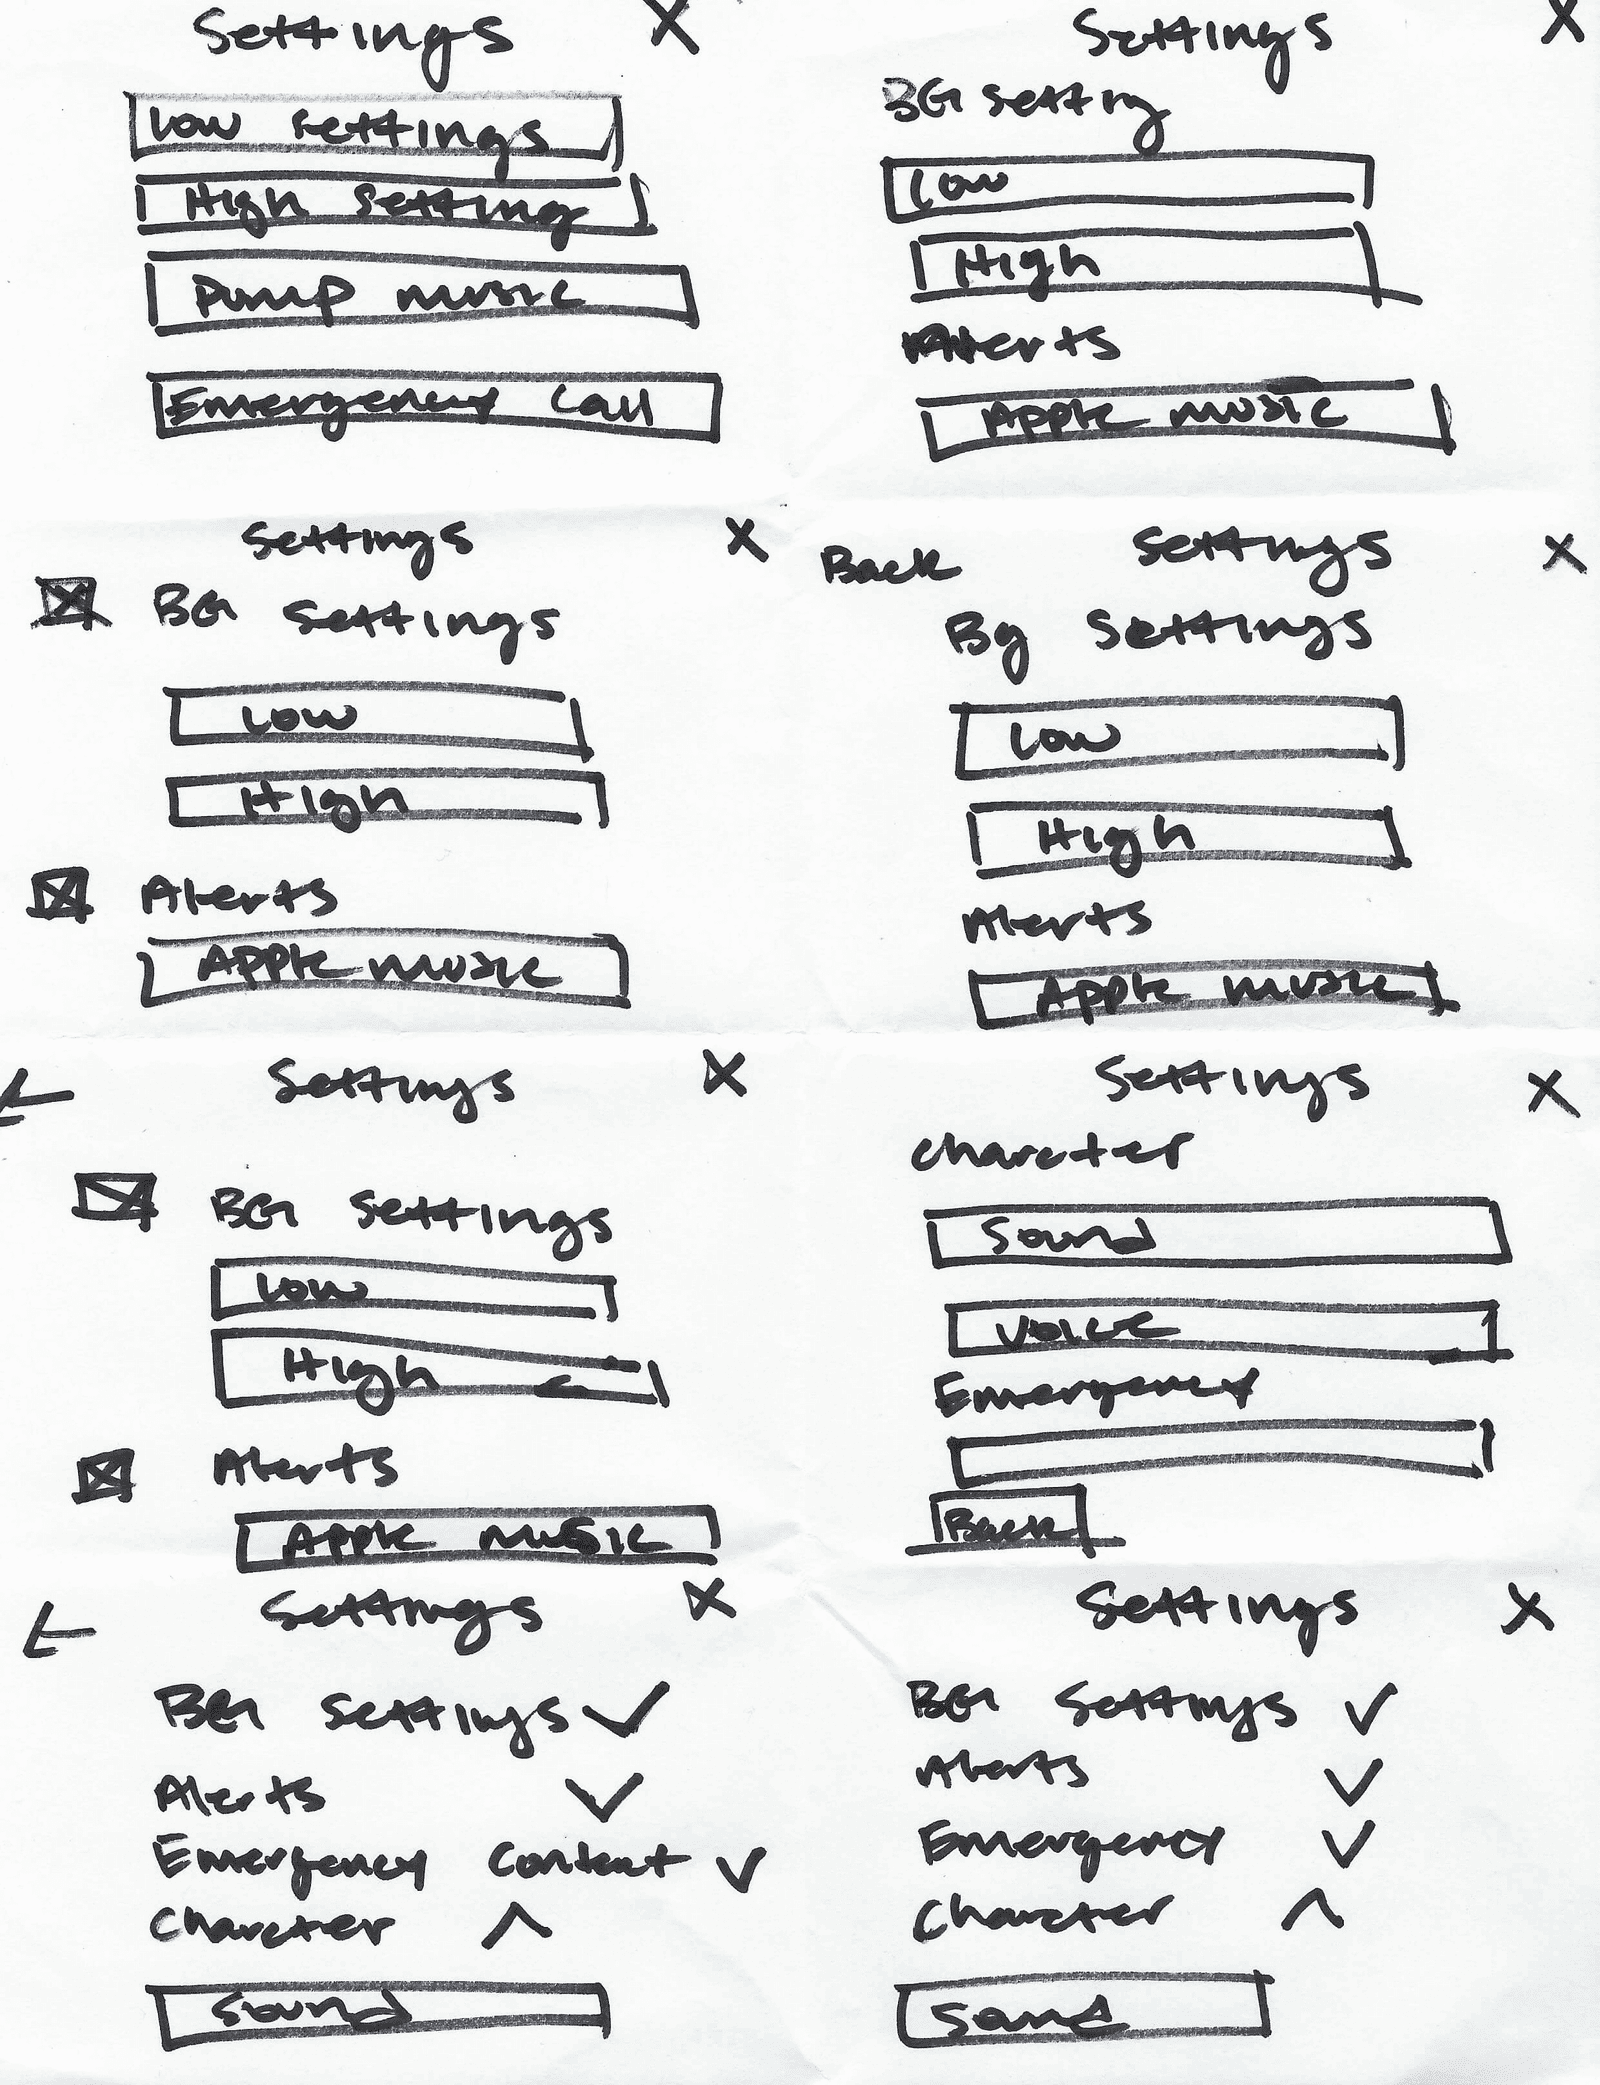 Settings X
Low settings
High Setting
Pump music
Emergency Call
Settings X
BG Setting
Low
High
Alerts
Apple music
Settings X
BG Settings
Low
High
Alerts
Apple music
Back Settings X
Bg Settings
Low
High
Alerts
Apple music
Settings X
BG Settings
Low
High
Alerts
Apple music
Settings X
Charcter
Sound
Voice
Emergency
Back
Settings X
BG Settings
Alerts
Emergency Contact
Charcter
Sound
Settings X
BG Settings
Alerts
Emergency
Charcter
Sound